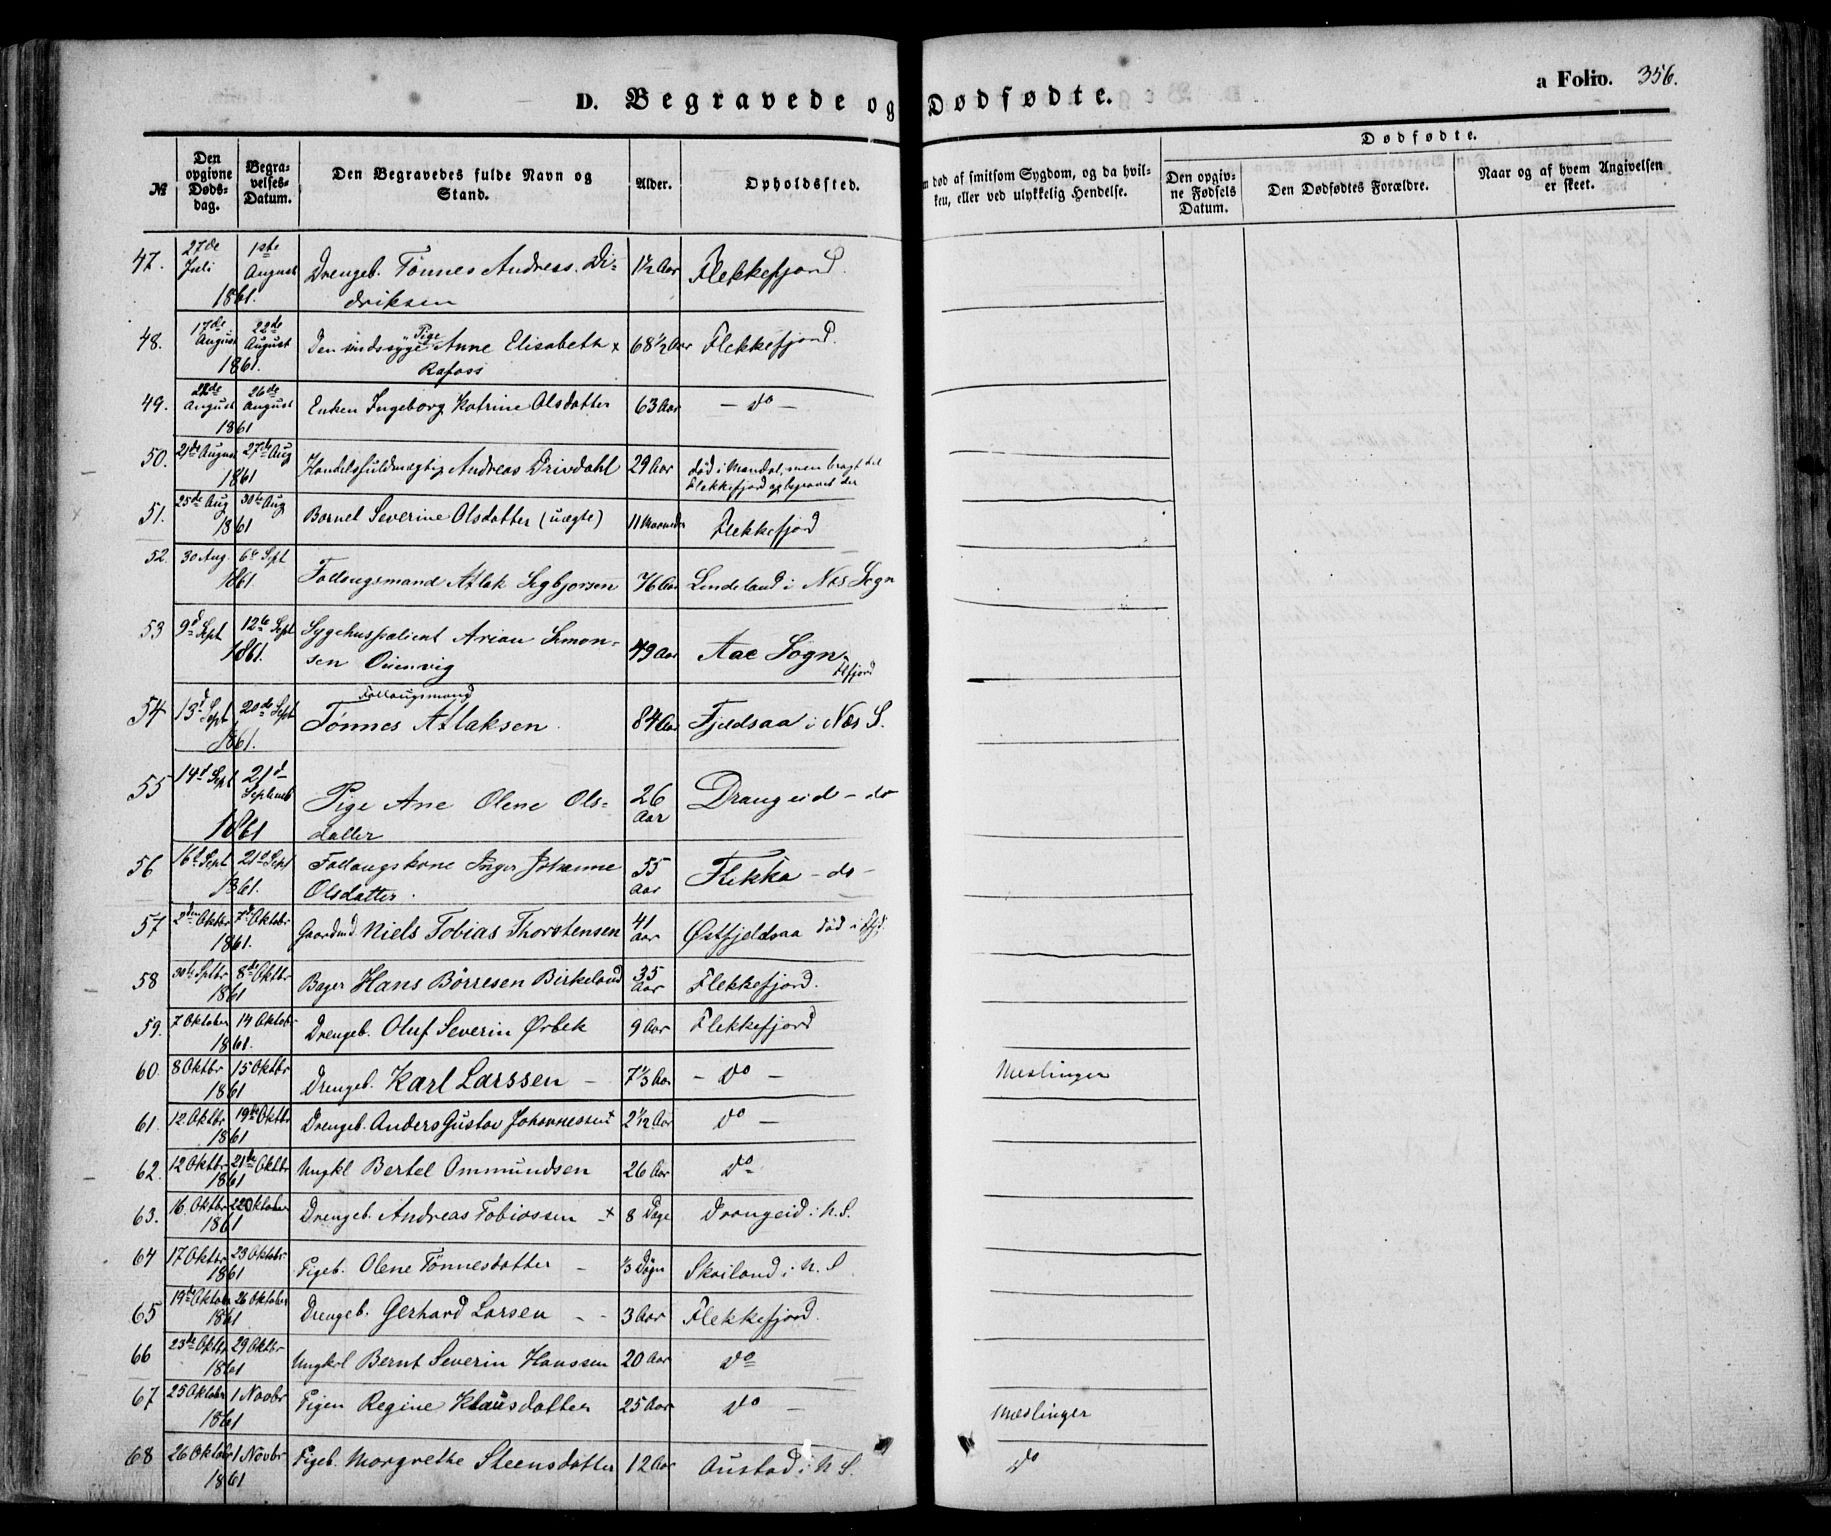 D. Begravede og Dødfødte.
a Folio. 356.
№
Den opgivne Døds-dag.
Begra-velses-Datum.
Den Begravedes fulde Navn og Stand.
Alder.
Opholdssted.
død af smitsom Sygdom, og da hvil-
ken, eller ved ulykkelig Hendelse.
Dødfødte.
Den opgiv-ne Fødsels Datum.
Den Dødfødtes Forældre.
Naar og af hvem Angivelsen er skeet.
47. 27de Juli 1ste August 1861. Drengeb. Tønnes Andreas Di- 1½ Aar Flekkefjord.
driksen
48. 17de August 22de August 1861. Den sindssyge Pige Anne Elisabeth x 68½ Aar Flekkefjord.
Rafoss
49. August 26de August 1861 Enken Ingeborg Katrine Olsdatter 63 Aar – do –
50. 21de August 27de Aug 1861 Handelsfuldmægtig Andreas Drivdahl 29 Aar død i Mandal, men bragt til
Flekkefjord og begravet der
51. 25de Aug 30te Aug 1861 Barnet Severine Olsdatter (uægte) 11 Maaneder Flekkefjord
52. 30 Aug. 6te Sept 1861. Follaugsmand Atlak Segbjorsen 76 Aar Lindeland i Næs Sogn
53 9d Sept 12te Sept 1861. Sygehuspatient Arian Simon- 49 Aar Aae Sogn
sen
54 13d Sept 20de Sept 1861. Follaugsmand
Tønnes Atlaksen. 84 Aar Fjeldsaa i Næs S.
55 14d Sept 21d September 1861 Pige Ane Olene Ols- 26 Aar Drangeid – do
datter
56 16d Sept 21d Sept 1861. Follaugskone Inger Johanne 55 Aar Flikka – do –
Olsdatter.
57 2den Oktbr 7de Oktobr 1861. Gaardmd Niels Tobias Thorstensen 41 Aar Østfjeldsaa død i
58 30te Sptbr 8de Oktbr 1861 Bager Hans Børresen Birkeland 35 Aar Flekkefjord.
59. 7 Oktober 14 Oktobr 1861. Drengeb. Oluf Severin Ørbek 9 Aar Flekkefjord
60. 8 Oktbr 15 Oktbr 1861 Drengeb. Karl Larssen – 7⅓ Aar – do – Meslinger
61. 12 Oktbr 19de Oktbr 1861 Drengeb. Anders Gustav Johannessen + 2½ Aar do –
62. 12 Oktbr 21de Oktbr 1861 Ungkl Bertel Ommundsen 26 Aar do
63. 16. Oktbr 22 Oktober 1861 Drengeb. Andreas Tobiassen + 8 Dage Drangeid i N. S.
64 17 Oktobr 23 Oktobr 1861 Pigeb. Olene Tønnesdatter – ⅓ Døgn Skailand i N. S
65 19de Oktober 26 Oktober 1861 Drengeb. Gerhard Larsen – – 3 Aar Flekkefjord.
66 23de Oktbr 29 Oktbr 1861 Ungkrl Bernt Severin Hanssen 20 Aar do
67 25 Oktober 1 Novbr 1861 Pigen Regine Klausdatter 25 Aar do – Mæslinger
68 26 Oktobr 1 Novbr 1861 Pigeb. Margrethe Steensdatter 12 Aar Austad i N. S. do